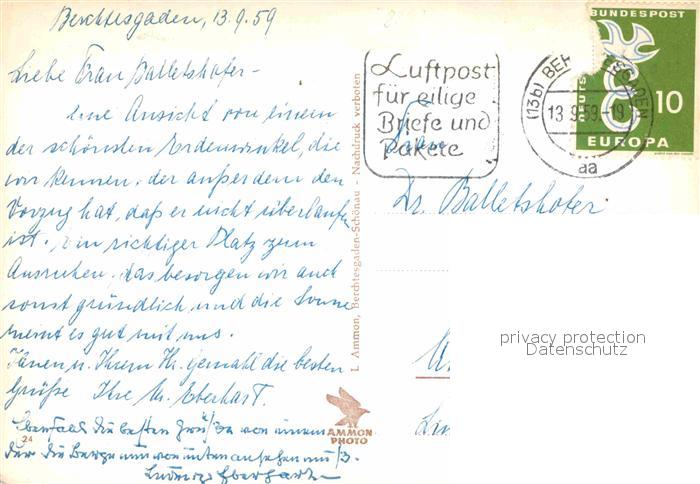 Berchtesgaden, 13.9.59
Liebe Frau Balletshofer –
Eine Ansicht von einem
der schönsten Erdenwinkel, die
wir kennen, der außerdem den
Vorzug hat, daß er nicht überlaufen
ist. Ein richtiger Platz zum
Ausruhen, das besorgen wir auch
sonst gründlich, und die Sonne
meint es gut mit uns.
Ihnen u. Ihrem Hr. Gemahl die besten
Grüße Ihre M. Eberhart.
Ebenfalls die besten Grüße von einem
der die Berge nur von unten ansehen muß.
Ludwig Eberhart
24
L. Ammon, Berchtesgaden-Schönau - Nachdruck verboten
AMMON
PHOTO
Luftpost
für eilige
Briefe und
Pakete
(13b) BERCHTESGADEN
13.9.59.-19
aa
BUNDESPOST
10
EUROPA
Frau
Dr. Balletshofer
privacy protection
Datenschutz